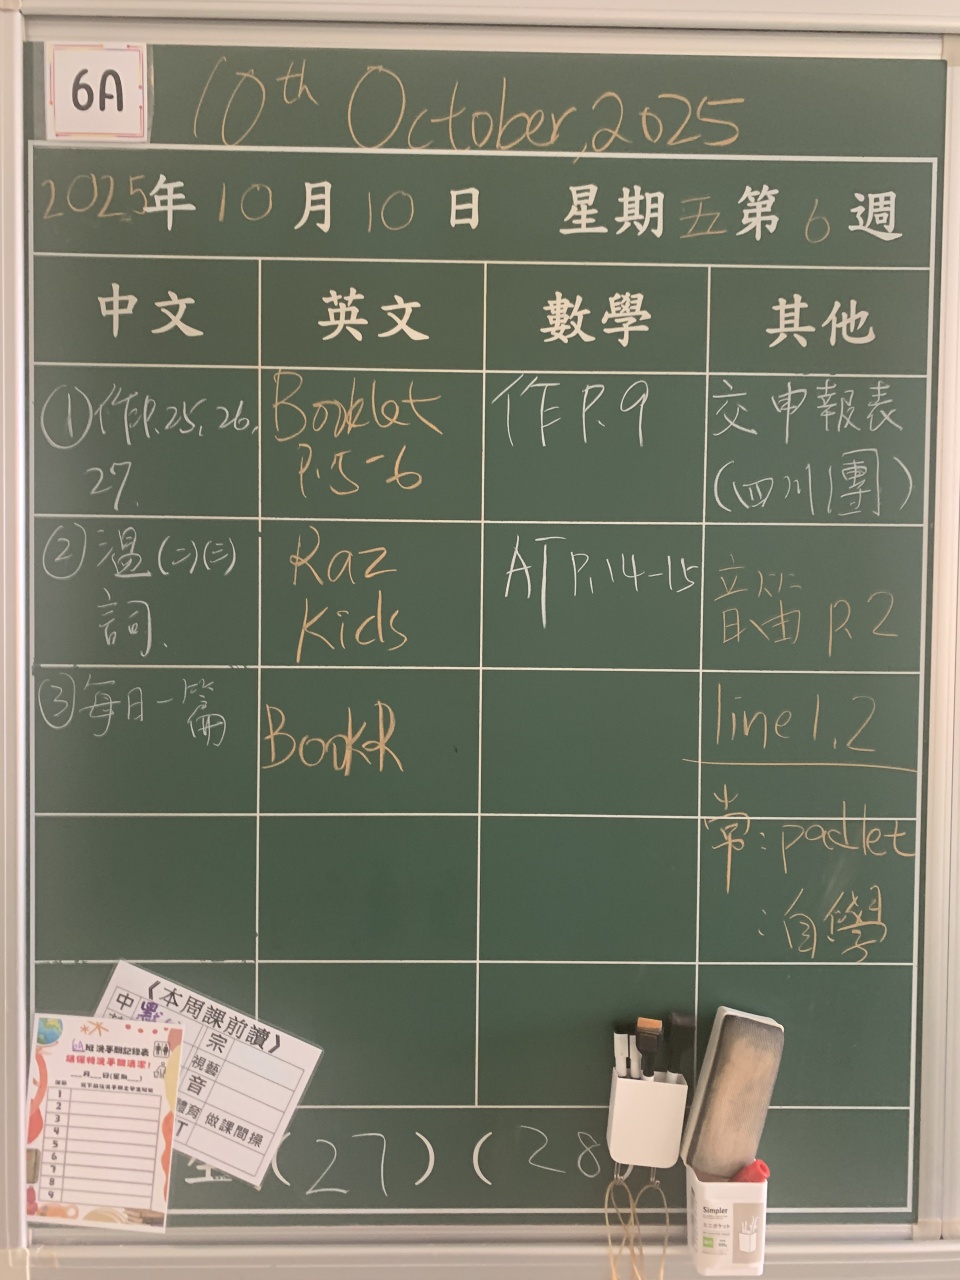 6A
10th October, 2025
2025年 10 月 10 日 星期 五 第 6 週
中文 英文 數學 其他
①作P.25, 26, 27.
Booklet P.5-6
作 P.9
交申報表 (四川團)
②溫(二)(三)詞.
Raz Kids
AT P.14-15
音笛 P.2
③每日一篇
BookR
line 1,2
常: padlet
: 自學
《本周課前讀》
中
宗
視藝
音
體育 做課間操
6A班洗手間記錄表
請保持洗手間清潔!
___月___日(星期___)
1
2
3
4
5
6
7
8
9
(27) (28
Simpler
ミニポケット